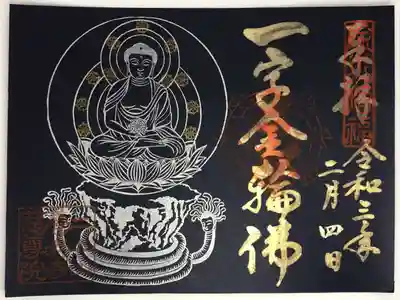 奉拝
令和三年
二月四日
一字金輪佛